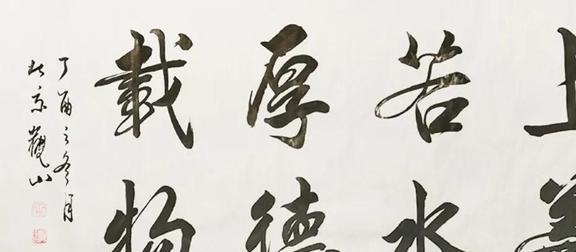 上善
若水
厚德
載物
丁酉之冬月
北京觀山